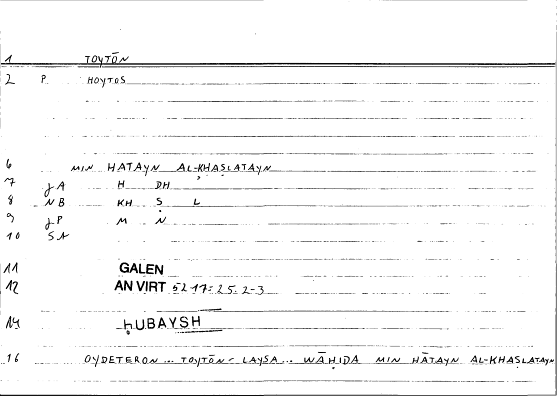 1 TOYTŌN
2 P. HOYTOS
6 MIN HATAYN AL-KHAṢLATAYN
7 JA H DH
8 NB KH Ṣ L
9 JP M N
10 SA
11 GALEN
12 AN VIRT 5217:25.2-3
14 ḤUBAYSH
16 OYDETERON... TOYTŌN- LAYSA... WĀḤIDA MIN HĀTAYN AL-KHAṢLATAYN